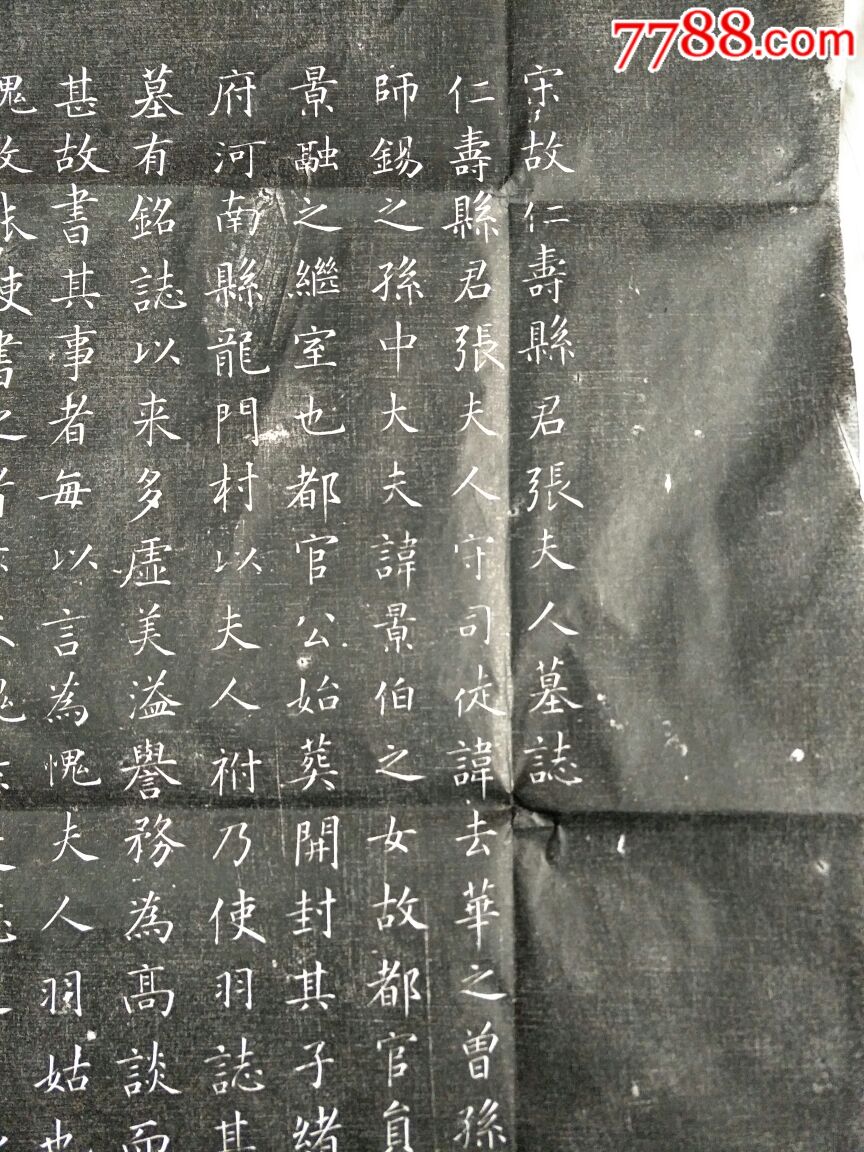 7788.com
宋故仁壽縣君張夫人墓誌
仁壽縣君張夫人守司徒諱去華之曾孫
師錫之孫中大夫諱景伯之女故都官員
景融之繼室也都官公始葬開封其子緒
府河南縣龍門村以夫人祔乃使羽誌其
墓有銘誌以来多虛美溢譽務為高談而
甚故書其事者每以言為愧夫人羽姑也
愧故
使書之者